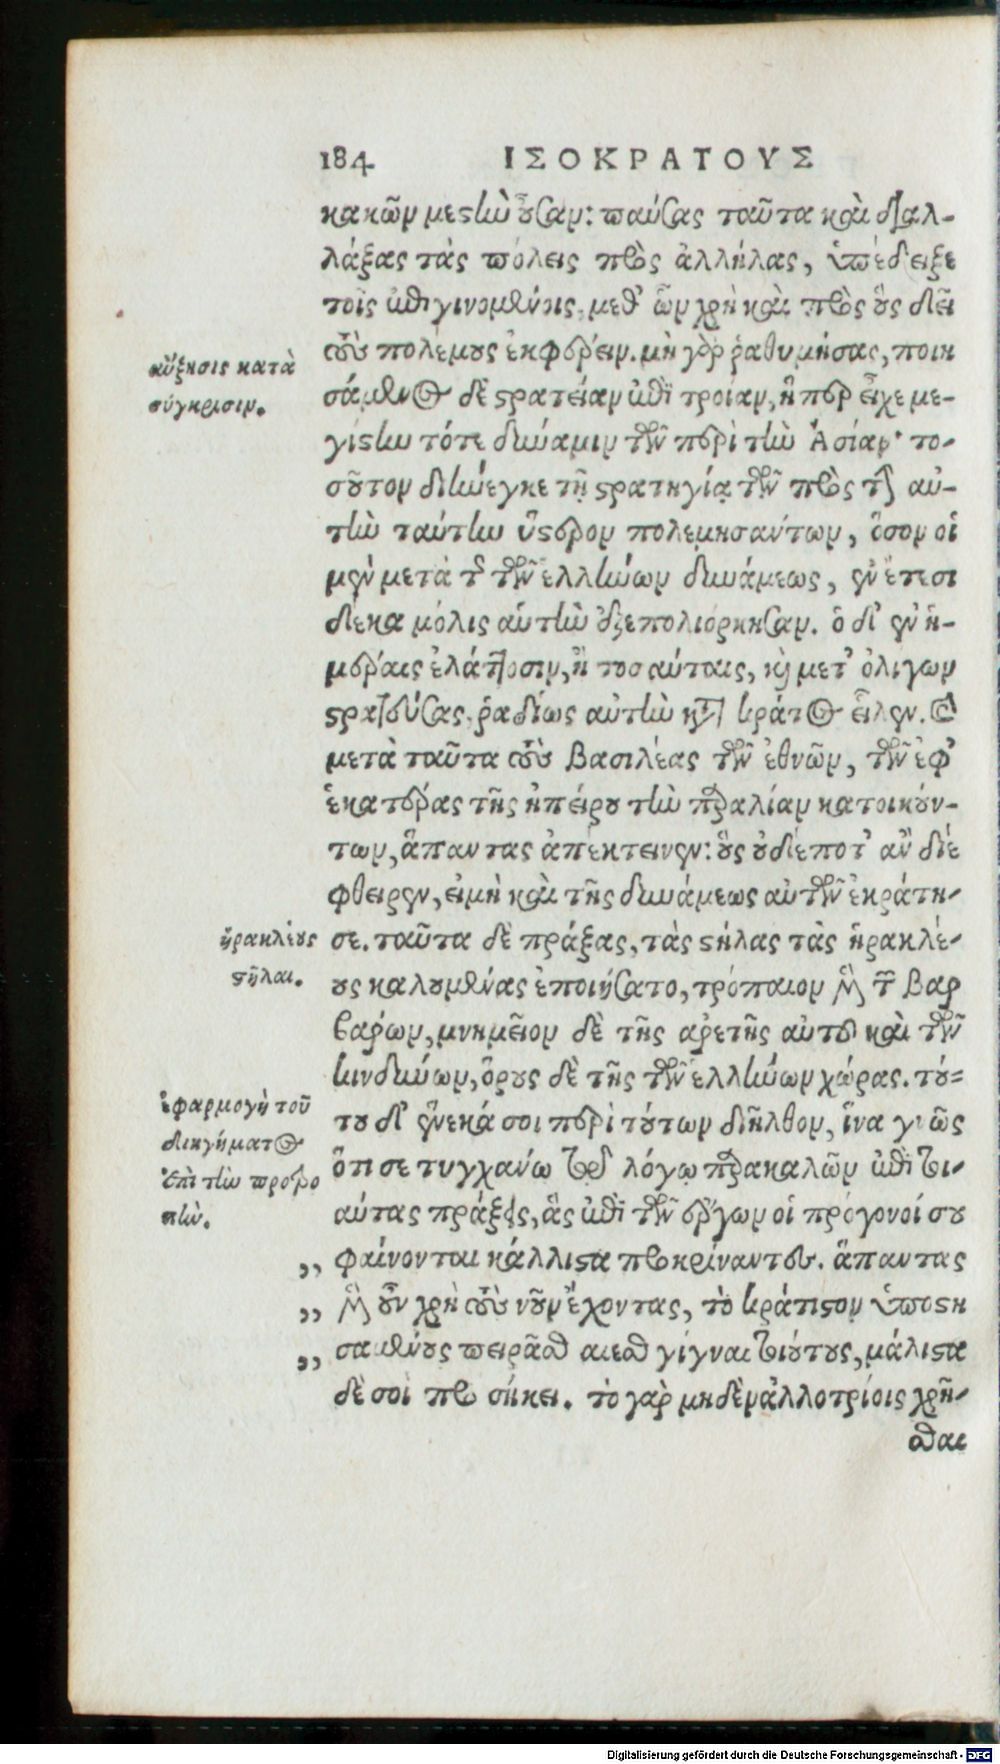 184 ΙΣΟΚΡΑΤΟΥΣ
κακῶν μεστὴν οὖσαν: παύσας ταῦτα καὶ διαλ-
λάξας τὰς πόλεις πρὸς ἀλλήλας, ὑπέδειξε
τοῖς ἐπιγινομένοις, μεθ' ὧν χρὴ καὶ πρὸς οὓς δεῖ
τοὺς πολέμους ἐκφέρειν. μὴ γὰρ ῥαθυμήσας, ποιη
αὔξησις κατὰ
σύγκρισιν.
σάμενος δὲ στρατείαν ἐπὶ τροίαν, ἥπερ εἶχε με-
γίστην τότε δύναμιν τῶν περὶ τὴν Ἀσίαν· το-
σοῦτον διήνεγκε τῇ στρατηγίᾳ τῶν πρὸς τὴν αὐ-
τὴν ταύτην ὕστερον πολεμησάντων, ὅσον οἱ
μὲν μετὰ τῆς τῶν ἑλλήνων δυνάμεως, ἐν ἔτεσι
δέκα μόλις αὐτὴν ἐξεπολιόρκησαν. ὁ δ' ἐν ἡ-
μέραις ἐλάττοσιν, ἢ τοσαύταις, καὶ μετ' ὀλίγων
στρατεύσας, ῥαδίως αὐτὴν κατὰ κράτος εἷλεν. καὶ
μετὰ ταῦτα τοὺς βασιλέας τῶν ἐθνῶν, τῶν ἐφ'
ἑκατέρας τῆς ἠπείρου τὴν παραλίαν κατοικούν-
των, ἅπαντας ἀπέκτεινεν: οὓς οὐδέποτ' ἂν διέ
φθειρεν, εἰ μὴ καὶ τῆς δυνάμεως αὐτῶν ἐκράτη-
ἡρακλέους
στῆλαι.
σε. ταῦτα δὲ πράξας, τὰς στήλας τὰς ἡρακλέ-
ους καλουμένας ἐποιήσατο, τρόπαιον μὲν τῶν βαρ
βάρων, μνημεῖον δὲ τῆς ἀρετῆς αὐτοῦ καὶ τῶν
κινδύνων, ὅρους δὲ τῆς τῶν ἑλλήνων χώρας. τού-
ἐφαρμογὴ τοῦ
διηγήματος
ἐπὶ τὴν προτρο
πήν.
του δ' ἕνεκά σοι περὶ τούτων διῆλθον, ἵνα γνῷς
ὅτι σε τυγχάνω τῷ λόγῳ παρακαλῶν ἐπὶ τοι-
αύτας πράξεις, ἃς ἐπὶ τῶν ἔργων οἱ πρόγονοί σου
„ φαίνονται κάλλιστα προκρίναντες. ἅπαντας
„ μὲν οὖν χρὴ τοὺς νοῦν ἔχοντας, τὸ κράτιστον ὑποστη
„ σαμένους πειρᾶσθαι γίγνεσθαι τοιούτους, μάλιστα
δὲ σοὶ προσήκει. τὸ γὰρ μηδὲν ἀλλοτρίοις χρῆ-
σθαι
Digitalisierung gefördert durch die Deutsche Forschungsgemeinschaft - DFG